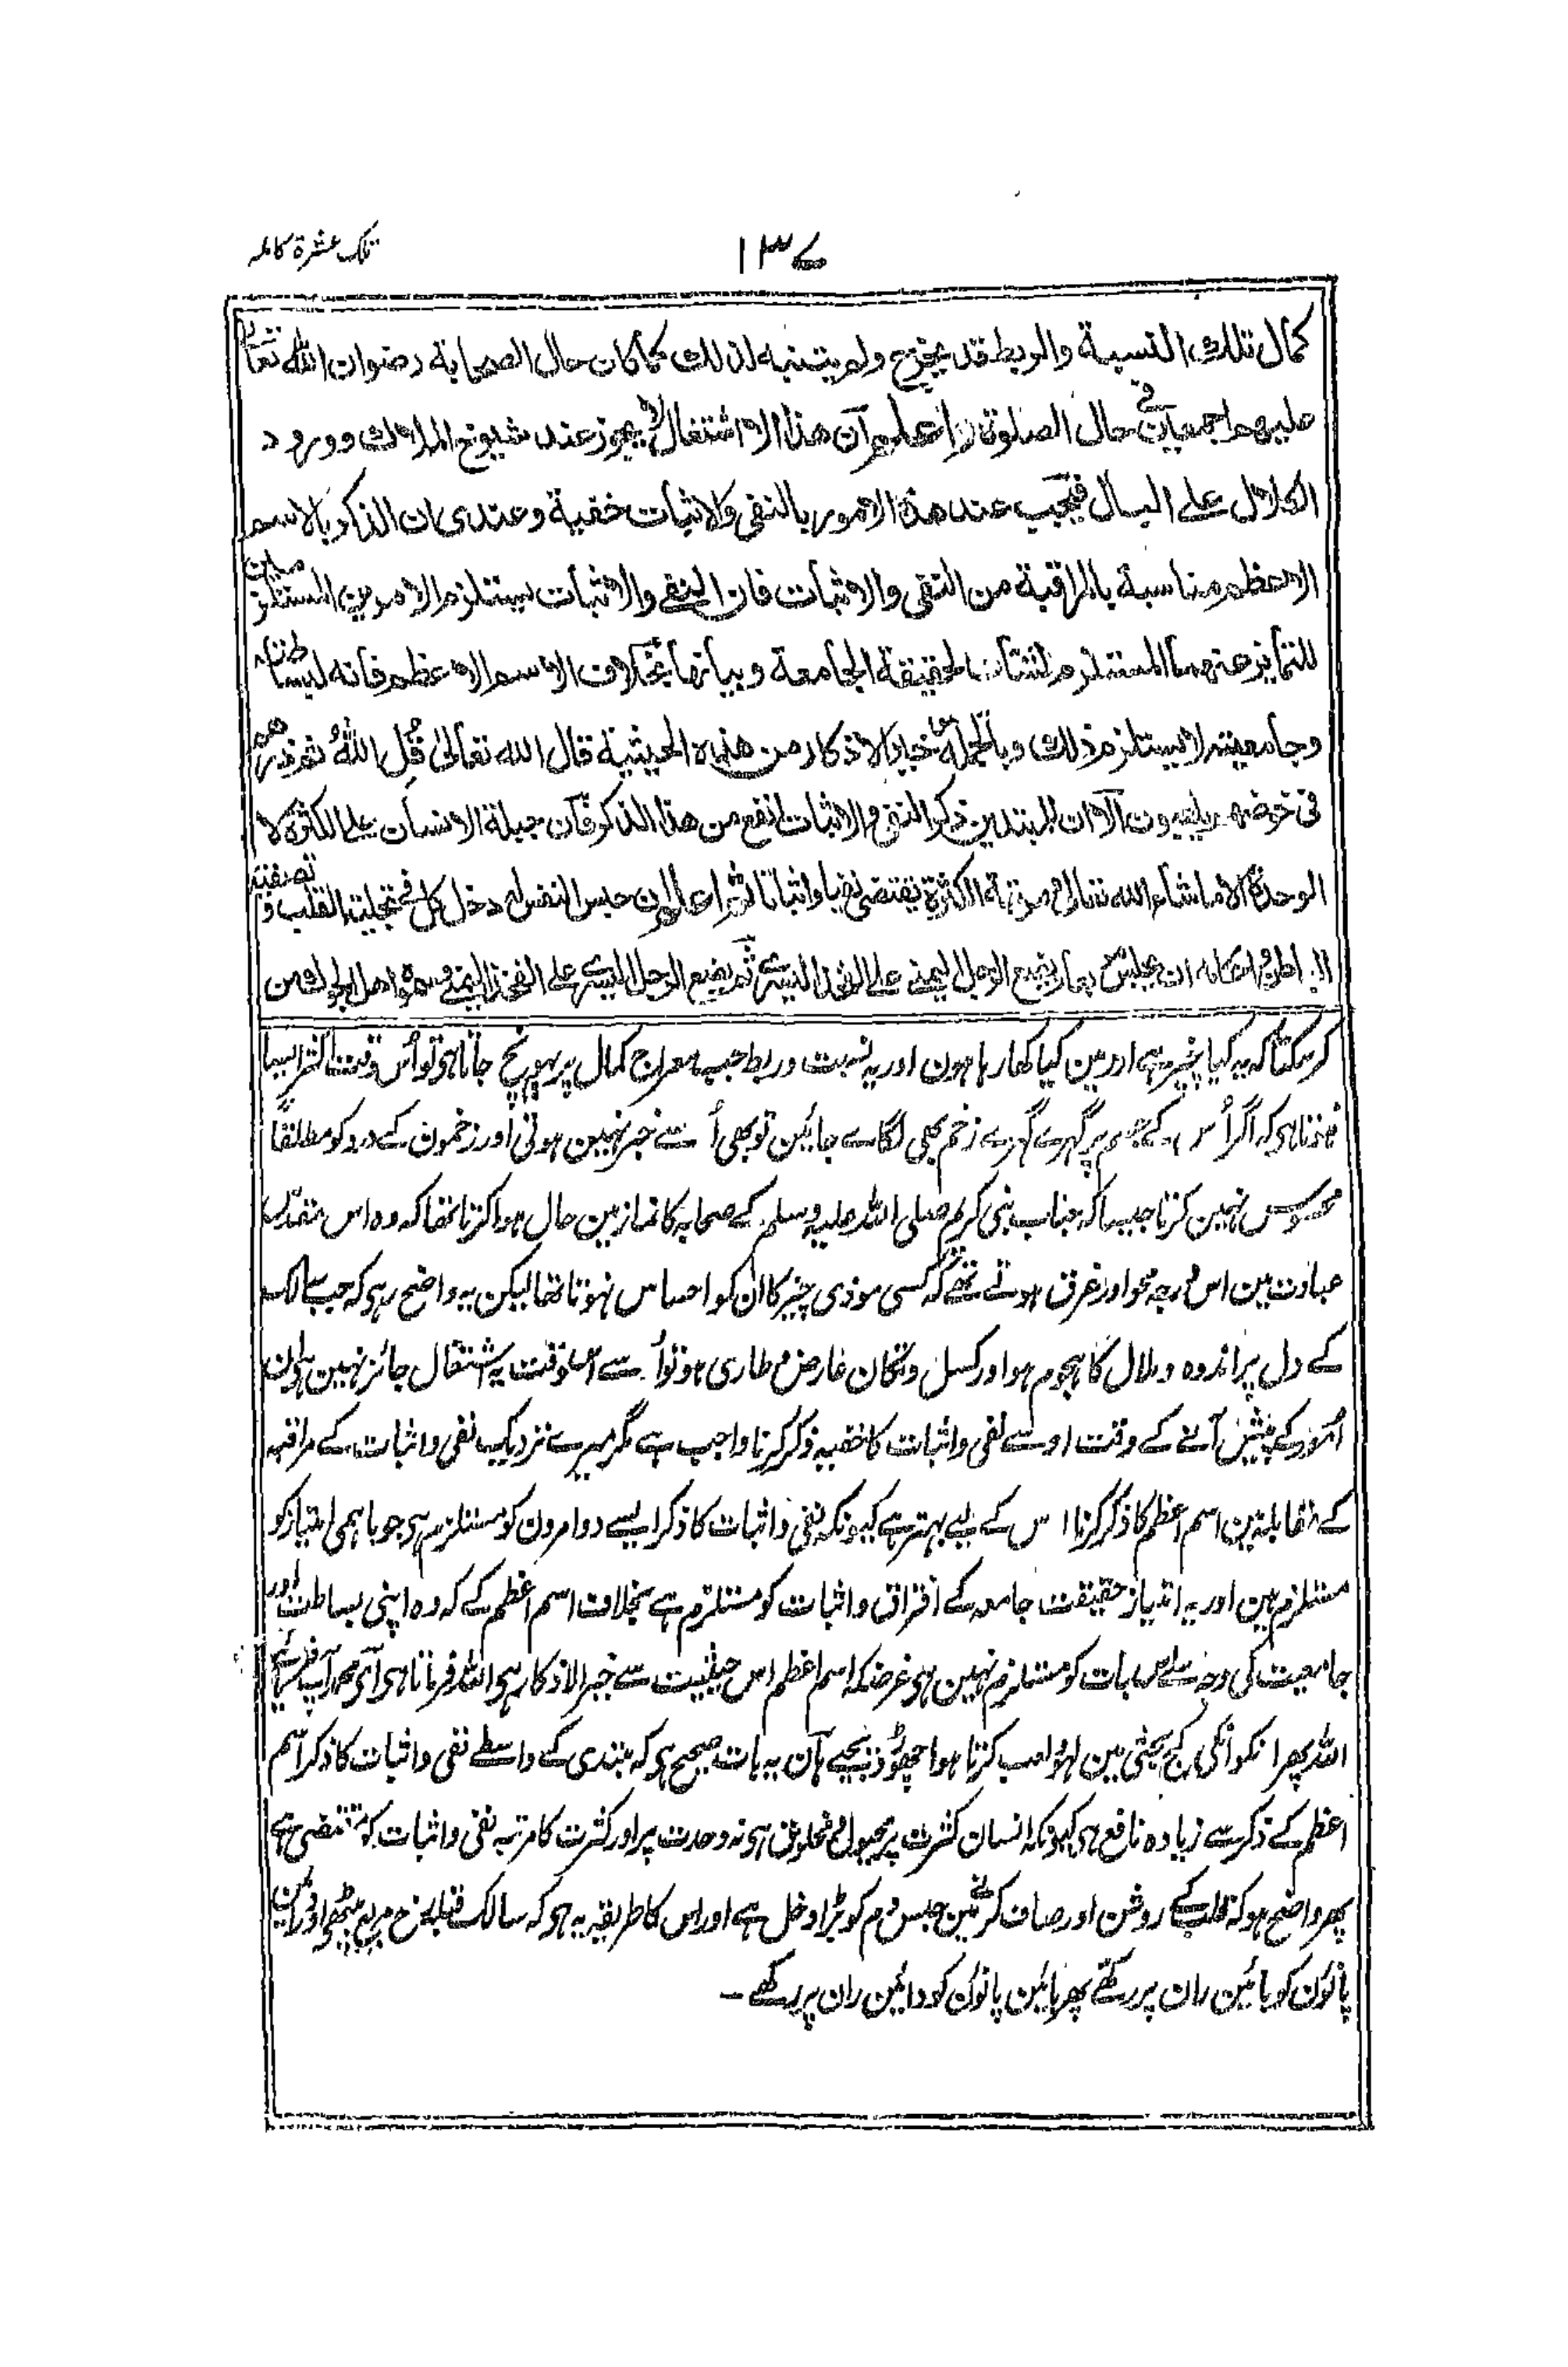 تلک عشرة کاملہ
۱۳۷
کمال تلك النسبة والربط قد یجرح ولم یتنبه لذلك كما كان حال الصحابة رضوان الله تعالى
علیهم اجمعین فی حال الصلوة ثم اعلم ان هذا الاشتغال لا یجوز عند شیوخ الملال وورود
الكلال على البال فیجب عند هذه الامور بالنفی والاثبات خفیة وعندی ان الذكر بالاسم
الاعظم مناسبة بالمراقبة من النفی والاثبات فان النفی والاثبات یستلزم الامرین المستلزمین
للتمایز عنهما المستلزم الحقیقة الجامعة وبیانها بخلاف الاسم الاعظم فانه لبساطته
وجامعیته لا یستلزم ذلك وبالجملة خیار الاذكار من هذه الحیثیة قال الله تعالى قُلِ اللهُ ثم ذرهم
فی خوضهم یلعبون الا ان للمبتدین ذكر النفی والاثبات انفع من هذا الذكر فان جبلة الانسان على الكثرة لا
الوحدة الا ما شاء الله تعالى ومرتبة الكثرة تقتضی نفیا واثباتا ثم اعلم ان حبس النفس له دخل كل فی تجلیة القلب وتصفیة
الباطن ان یجلس یضع الرجل الیمنی على الفخذ الیسری ثم یضع الرجل الیسری على الفخذ الیمنی من
کر سکتا کہ یہ کیا چیز ہے اور مین کیا کھا رہا ہون اور یہ نسبت و ربط جب معراج کمال پر پہونچ جاتا ہی تو اُس وقت اکثر ایسا
ہوتا ہی کہ اگر اُس کے جسم پر گہرے گہرے زخم بھی لگائے جائین تو بھی اُسے خبر نہین ہوتی اور زخمون کے درد کو مطلقًا
محسوس نہین کرتا جیسا کہ جناب نبی کریم صلی اللہ علیہ وسلم کے صحابہ کا نماز مین حال ہوا کرتا تھا کہ وہ اس مقدس
عبادت مین اس درجہ محو اور غرق ہوتے تھے کہ کسی موذی چیز کا ان کو احساس نہوتا تھا لیکن یہ واضح رہی کہ جب سالک
کے دل پر اندوہ و ملال کا ہجوم ہو اور کسل و تکان عارض و طاری ہو تو اُسے اسوقت یہ اشتغال جائز نہین ہی ان
امور کے پیش آنے کے وقت اوسے نفی و اثبات کا خفیہ ذکر کرنا واجب ہے مگر میرے نزدیک نفی و اثبات کے مراقبہ
کے مقابلہ مین اسم اعظم کا ذکر کرنا اس کے لیے بہتر ہے کیونکہ نفی و اثبات کا ذکر ایسے دو امرون کو مستلزم ہی جو باہمی امتیاز کو
مستلزم ہین اور یہ امتیاز حقیقت جامعہ کے افتراق و اثبات کو مستلزم ہے بخلاف اسم اعظم کے کہ وہ اپنی بساطت اور
جامعیت کی وجہ سے اس بات کو مستلزم نہین ہی غرضکہ اسم اعظم اس حیثیت سے خیر الاذکار ہی اللہ فرماتا ہی ای محمد آپ
اللہ پھر انکو انکی کج بحثی مین لہو و لعب کرتا ہوا چھوڑ دیجیے ہان یہ بات صحیح ہی کہ مبتدی کے واسطے نفی و اثبات کا ذکر اسم
اعظم کے ذکر سے زیادہ نافع ہی کیونکہ انسان کثرت پر مجبول و مخلوق ہی نہ وحدت پر اور کثرت کا مرتبہ نفی و اثبات کو مقتضی ہے
پھر واضح ہو کہ قلب کے روشن اور صاف کرنے مین حبس دم کو بڑا دخل ہے اور اس کا طریقہ یہ ہی کہ سالک قبلہ رخ مربع بیٹھے اور دائین
پانون کو بائین ران پر رکھے پھر بائین پانون کو دائین ران پر رکھے ۔